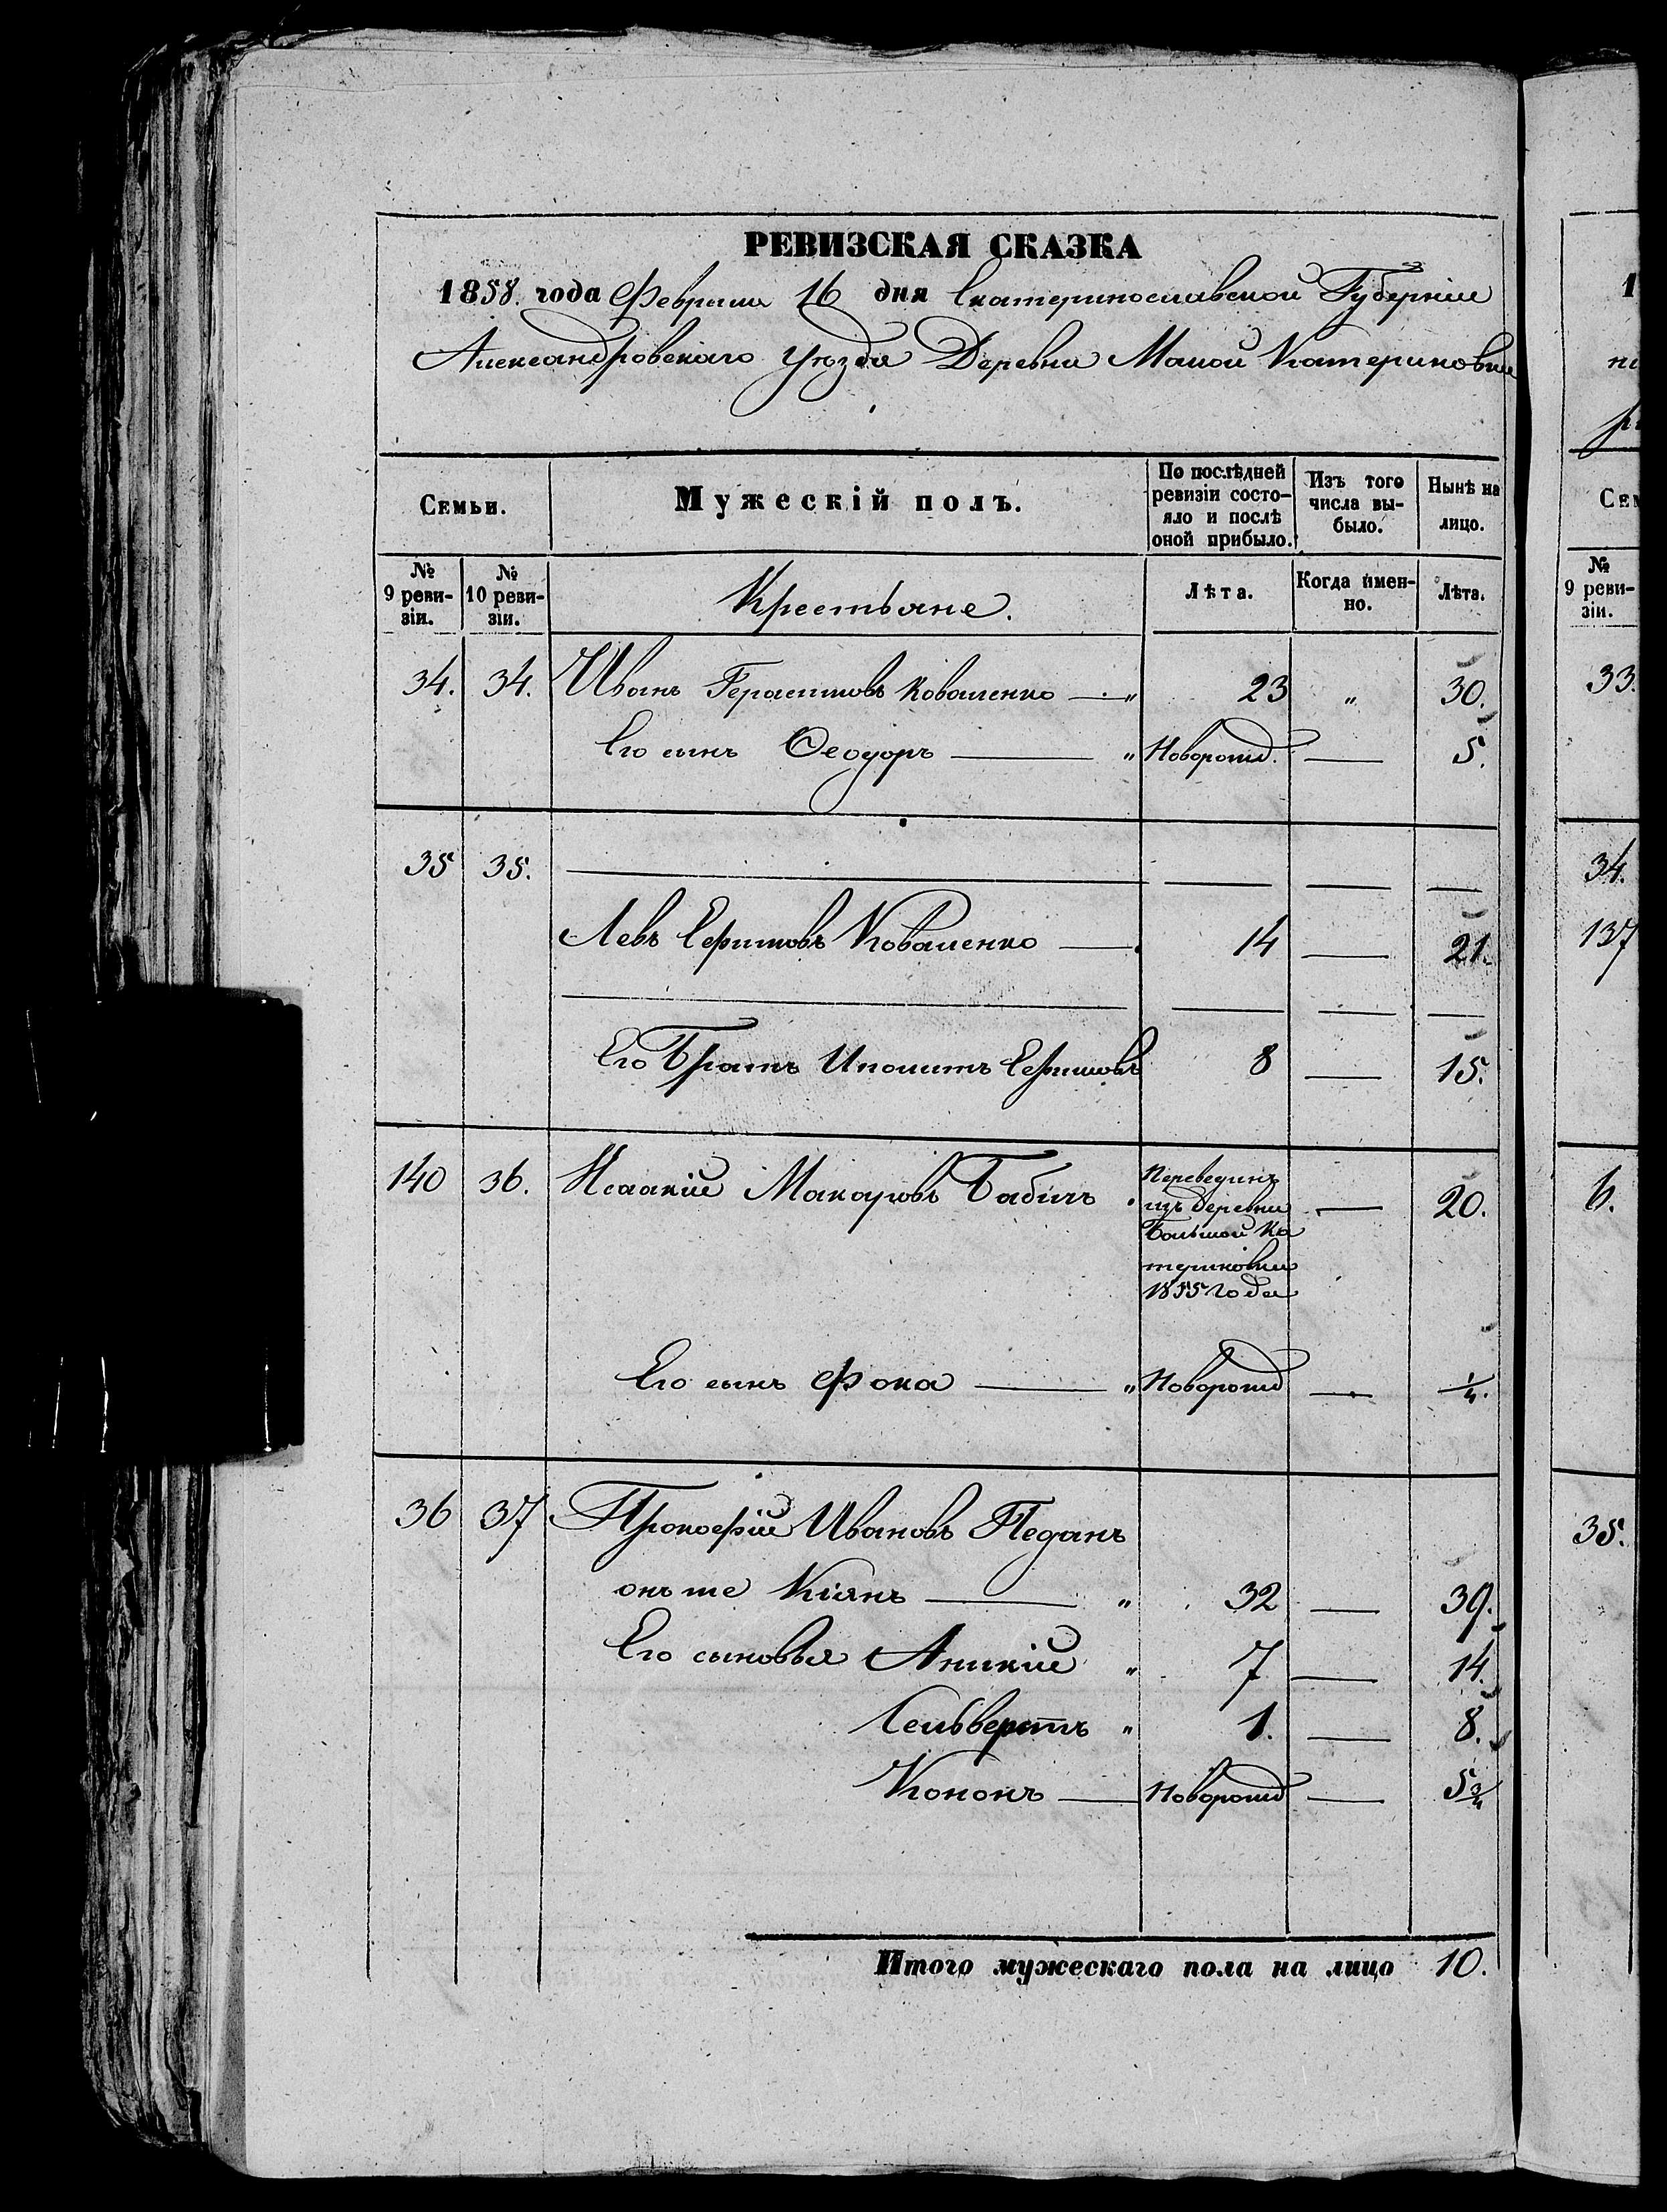 РЕВИЗСКАЯ СКАЗКА
1858. года Февраля 16 дня Екатеринославской Губерніи
Александровскаго уѣзда Деревни Малой Катериновки
Семьи.
Мужескій полъ.
По послѣдней ревизіи состояло и послѣ оной прибыло.
Изъ того числа выбыло.
Нынѣ на лицо.
№ 9 ревизіи.
№ 10 ревизіи.
Крестьяне.
Лѣта.
Когда имен-
но.
Лѣта.
34. 34. Иванъ Герасимовъ Коваленко — „ 23 „ 30.
Его сынъ Ѳеодоръ — „ Новорожд. — 5.
35 35. — — — —
Левъ Ефимовъ Коваленко — 14 — 21.
— — — —
Его Братъ Иполитъ Ефимовъ 8 — 15.
140 36. Исаакій Макаровъ Бабичъ Перевединъ — 20.
изъ деревни
Большой Ка
териновки
1855 года
Его сынъ Фока — „ Новорожд — 1/4.
36 37 Прокофій Ивановъ Педанъ
онъ же Кіянъ — „ 32 — 39.
Его сыновья Аникій „ 7 — 14.
Сельверстъ „ 1. — 8.
Кононъ — Новорожд — 5 3/4
Итого мужескаго пола на лицо 10.
1
Сем
№
9 реви-
зіи.
33.
34.
137
6.
35.